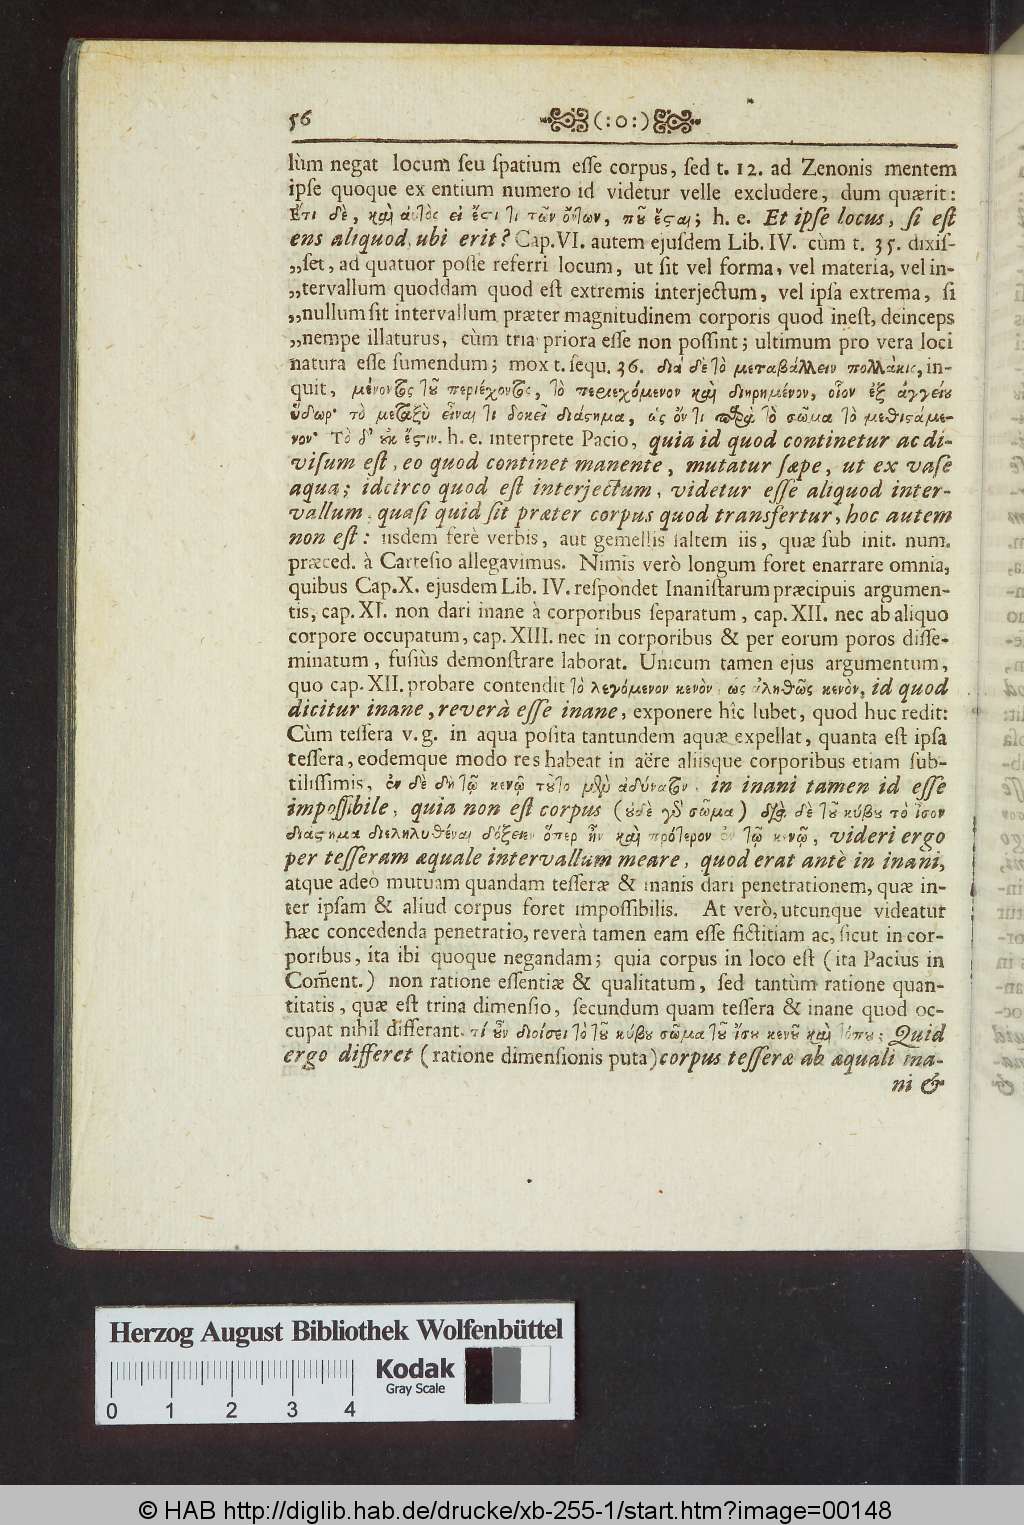 56 (:o:)
lùm negat locum seu spatium esse corpus, sed t. 12. ad Zenonis mentem
ipse quoque ex entium numero id videtur velle excludere, dum quærit:
Ἔτι δὲ, καὶ αὐτὸς εἰ ἔςι τι τῶν ὄντων, ποῦ ἔςαι; h. e. Et ipse locus, si est
ens aliquod, ubi erit? Cap. VI. autem ejusdem Lib. IV. cùm t. 35. dixis-
„set, ad quatuor posse referri locum, ut sit vel forma, vel materia, vel in-
„tervallum quoddam quod est extremis interjectum, vel ipsa extrema, si
„nullum sit intervallum præter magnitudinem corporis quod inest, deinceps
„nempe illaturus, cùm tria priora esse non possint; ultimum pro vera loci
natura esse sumendum; mox t. sequ. 36. διὰ δὲ τὸ μεταβάλλειν πολλάκις, in-
quit, μένοντος τοῦ περιέχοντος, τὸ περιεχόμενον καὶ διηρημένον, οἷον ἐξ ἀγγείου
ὕδωρ· τὸ μεταξὺ εἶναι τι δοκεῖ διάςημα, ὡς ὄν τι παρὰ τὸ σῶμα τὸ μεθιςάμε-
νον· Τὸ δ' οὐκ ἔςιν. h. e. interprete Pacio, quia id quod continetur ac di-
visum est, eo quod continet manente, mutatur sæpe, ut ex vase
aqua; idcirco quod est interjectum, videtur esse aliquod inter-
vallum, quasi quid sit præter corpus quod transfertur, hoc autem
non est: iisdem ferè verbis, aut gemellis saltem iis, quæ sub init. num.
præced. à Cartesio allegavimus. Nimis verò longum foret enarrare omnia,
quibus Cap. X. ejusdem Lib. IV. respondet Inanistarum præcipuis argumen-
tis, cap. XI. non dari inane à corporibus separatum, cap. XII. nec ab aliquo
corpore occupatum, cap. XIII. nec in corporibus & per eorum poros disse-
minatum, fusiùs demonstrare laborat. Unicum tamen ejus argumentum,
quo cap. XII. probare contendit τὸ λεγόμενον κενὸν, ὡς ἀληθῶς κενὸν, id quod
dicitur inane, reverà esse inane, exponere hîc lubet, quod huc redit:
Cùm tessera v. g. in aqua posita tantundem aquæ expellat, quanta est ipsa
tessera, eodemque modo res habeat in aëre aliisque corporibus etiam sub-
tilissimis, ἐν δὲ δὴ τῷ κενῷ τοῦτο μὲν ἀδύνατον, in inani tamen id esse
impossibile, quia non est corpus (οὐδὲ γὰρ σῶμα) διὰ δὲ τοῦ κύβου τὸ ἴσον
διάςημα διεληλυθέναι δόξειεν ὅπερ ἦν καὶ πρότερον ἐν τῷ κενῷ, videri ergo
per tesseram æquale intervallum meare, quod erat antè in inani,
atque adeò mutuam quandam tesseræ & inanis dari penetrationem, quæ in-
ter ipsam & aliud corpus foret impossibilis. At verò, utcunque videatur
hæc concedenda penetratio, reverà tamen eam esse fictitiam ac, sicut in cor-
poribus, ita ibi quoque negandam; quia corpus in loco est (ita Pacius in
Com̃ent.) non ratione essentiæ & qualitatum, sed tantùm ratione quan-
titatis, quæ est trina dimensio, secundum quam tessera & inane quod oc-
cupat nihil differant. τί οὖν διοίσει τὸ τοῦ κύβου σῶμα τοῦ ἴσου κενοῦ καὶ τόπου; Quid
ergo differet (ratione dimensionis puta) corpus tesseræ ab æquali ina-
ni &
Herzog August Bibliothek Wolfenbüttel
Kodak
Gray Scale
0 1 2 3 4
© HAB http://diglib.hab.de/drucke/xb-255-1/start.htm?image=00148